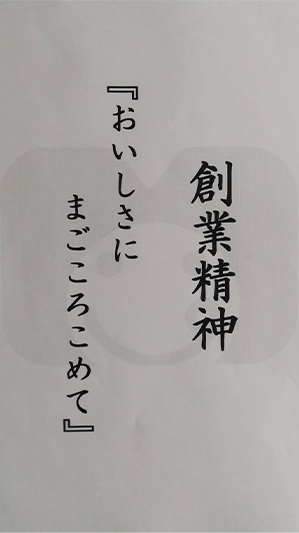 創業精神
『おいしさに
まごころこめて』